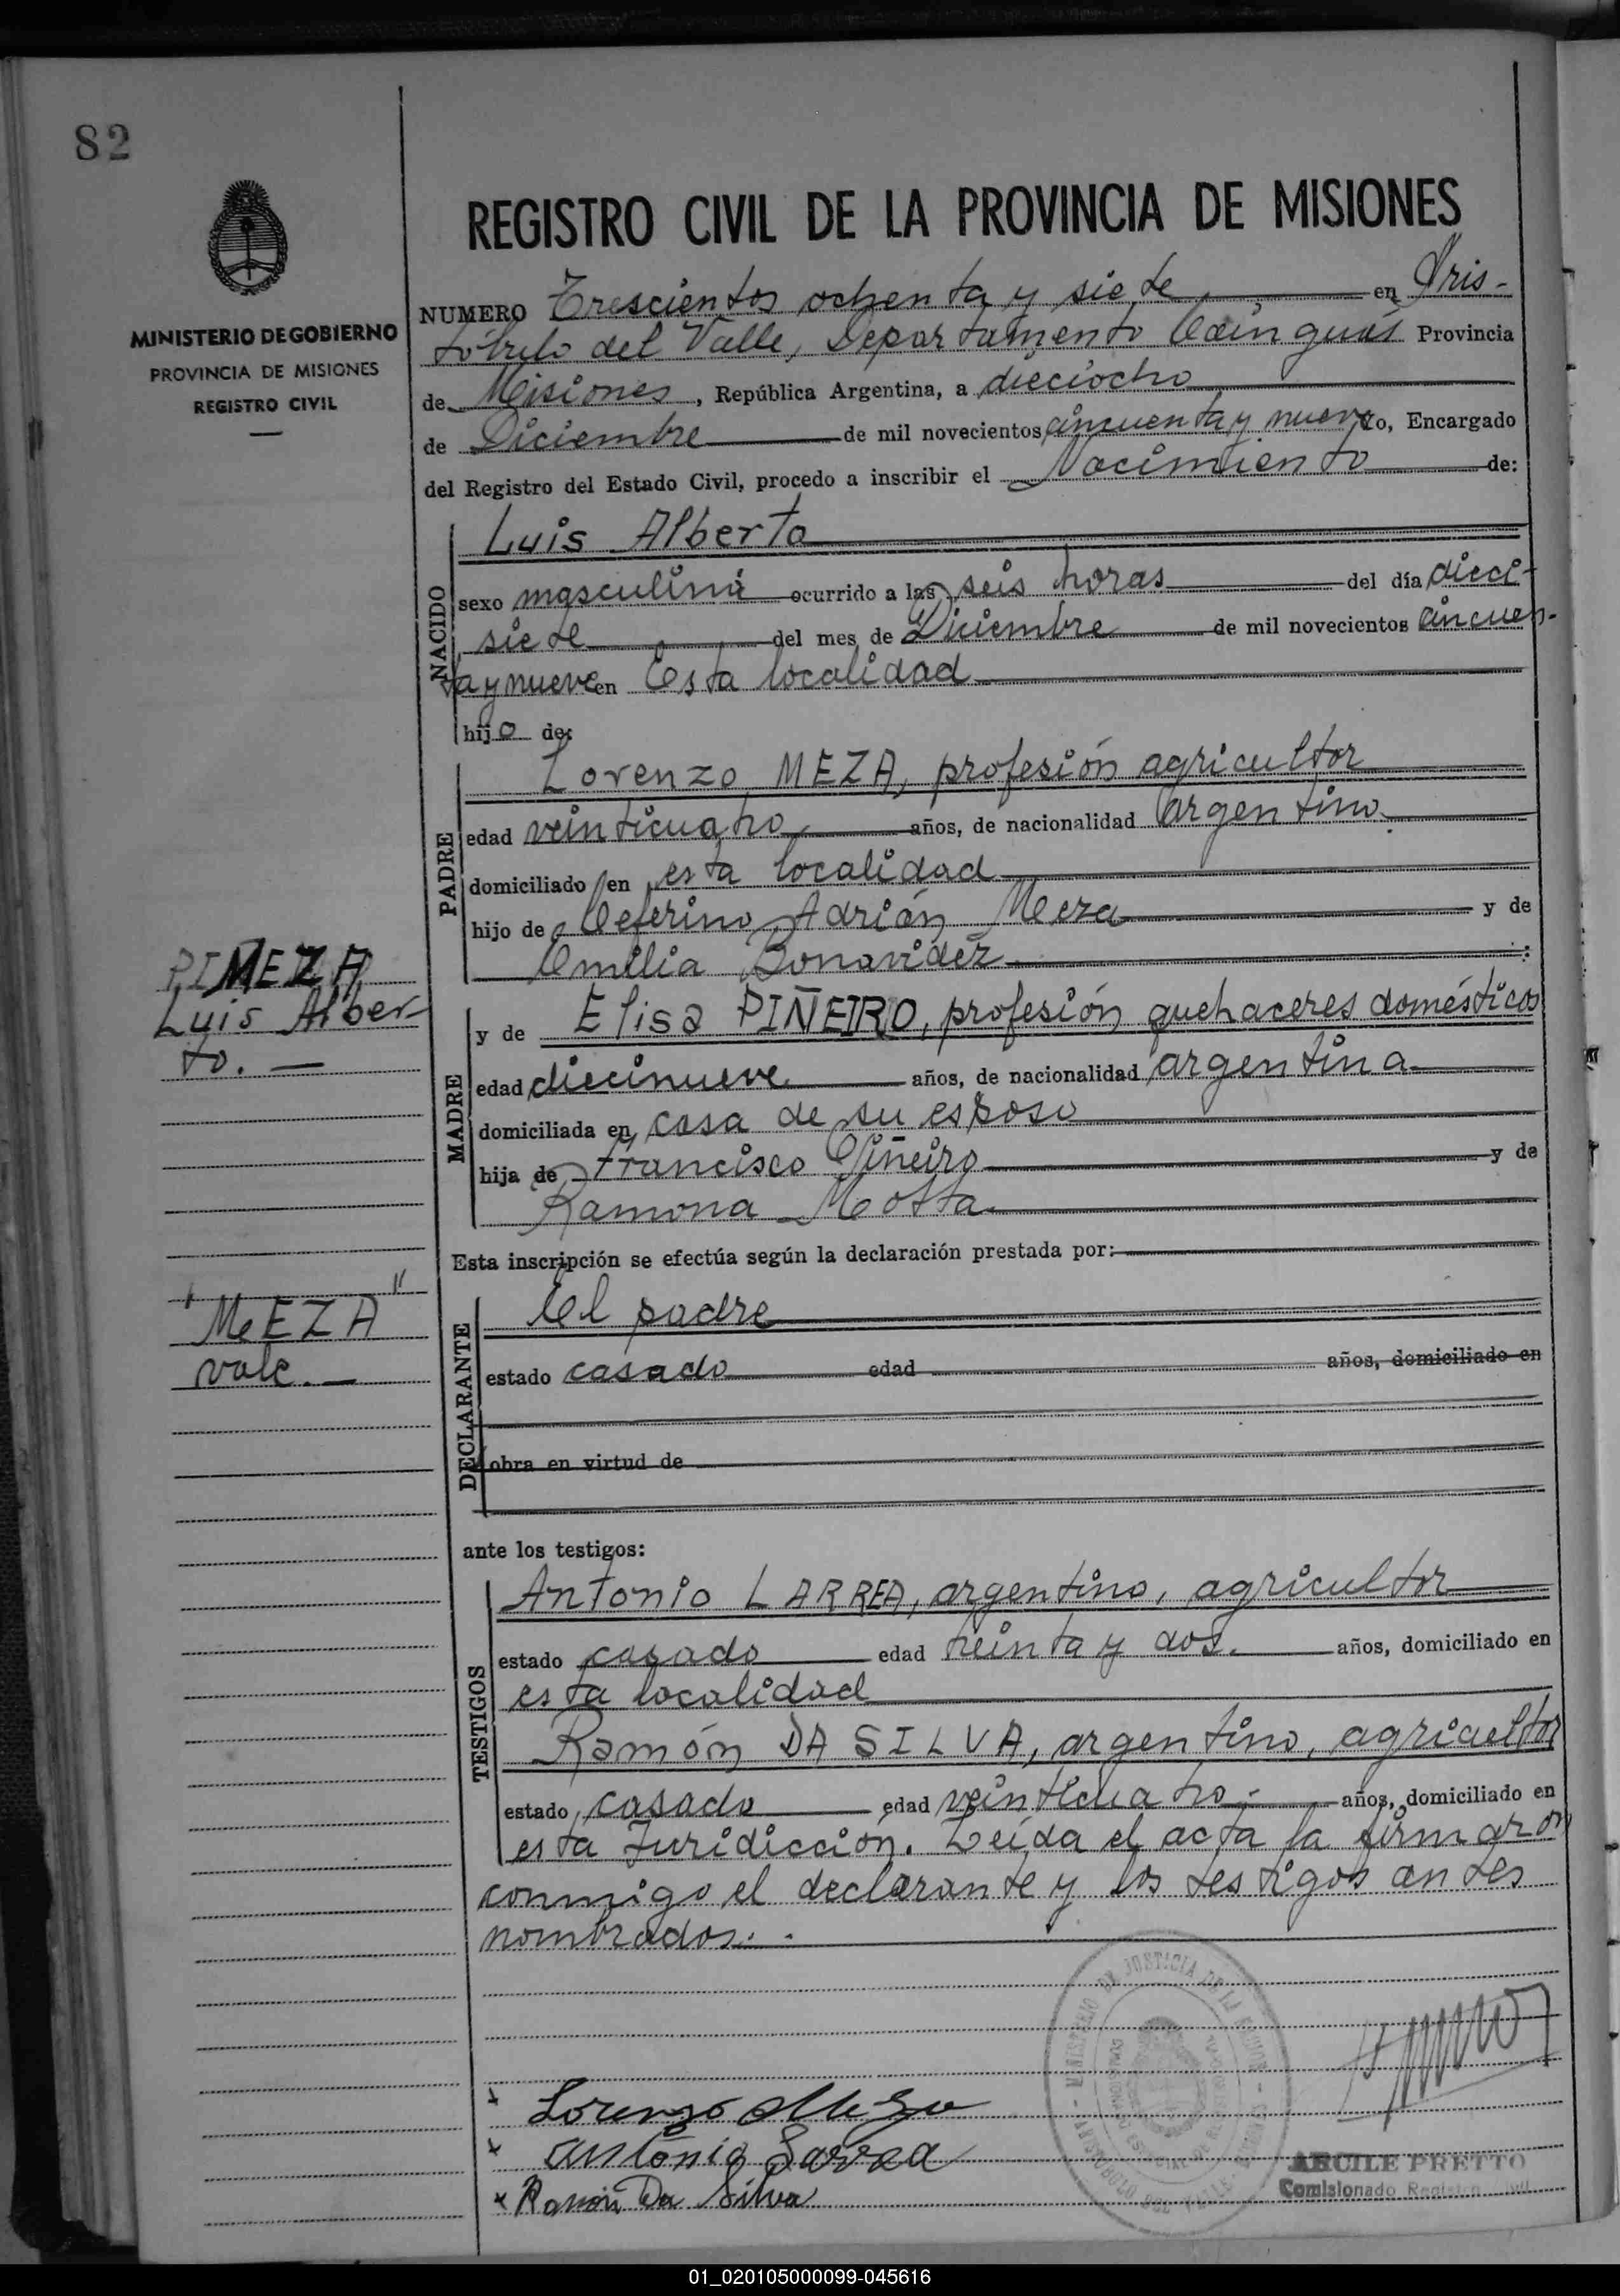 82
MINISTERIO DE GOBIERNO
PROVINCIA DE MISIONES
REGISTRO CIVIL
REGISTRO CIVIL DE LA PROVINCIA DE MISIONES
NUMERO Trescientos ochenta y siete en Aris-
tóbulo del Valle, Departamento Cainguás Provincia
de Misiones, República Argentina, a dieciocho
de Diciembre de mil novecientos cincuenta y nueve yo, Encargado
del Registro del Estado Civil, procedo a inscribir el Nacimiento de:
NACIDO
Luis Alberto
sexo masculino ocurrido a las seis horas del día dieci-
siete del mes de Diciembre de mil novecientos cincuen-
ta y nueve en Esta localidad
hijo de:
PADRE
Lorenzo MEZA, profesión agricultor
edad veinticuatro años, de nacionalidad argentino.
domiciliado en esta localidad
hijo de Ceferino Adrián Meza y de
Emilia Bonavidez
PIMEZA
Luis Alber-
to. —
MADRE
y de Elisa PIÑEIRO, profesión quehaceres domésticos
edad diecinueve años, de nacionalidad argentina.
domiciliada en casa de su esposo
hija de Francisco Piñeiro y de
Ramona Motta.
Esta inscripción se efectúa según la declaración prestada por:
"MEZA"
vale. —
DECLARANTE
El padre
estado casado edad años, domiciliado en
obra en virtud de
ante los testigos:
TESTIGOS
Antonio LARREA, argentino, agricultor
estado casado edad treinta y dos. años, domiciliado en
esta localidad
Ramón DA SILVA, argentino, agricultor
estado casado edad veinticuatro. años, domiciliado en
esta Juridicción. Leída el acta la firmaron
conmigo el declarante y los testigos antes
nombrados.
Lorenzo Meza
Antonio Larrea
Ramón Da Silva
ARCILE PRETTO
Comisionado Registro Civil
01_020105000099-045616